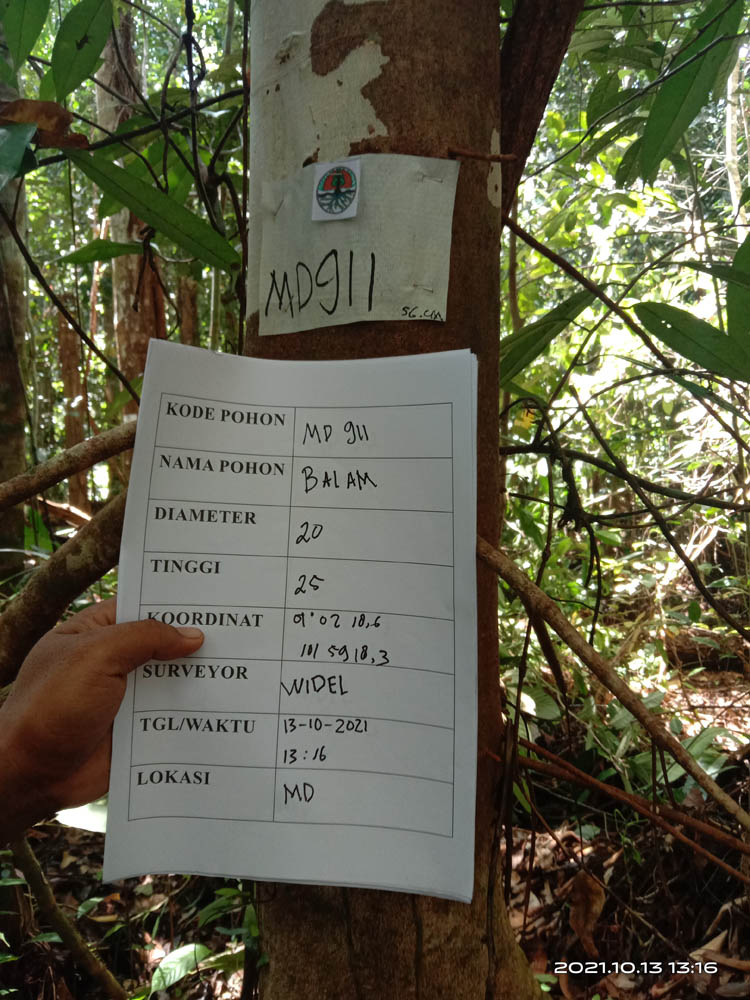 MD911
56.CM
KODE POHON MD 911
NAMA POHON BALAM
DIAMETER 20
TINGGI 25
KOORDINAT 01°02 18,6
101 59 18,3
SURVEYOR WIDEL
TGL/WAKTU 13-10-2021
13:16
LOKASI MD
2021.10.13 13:16